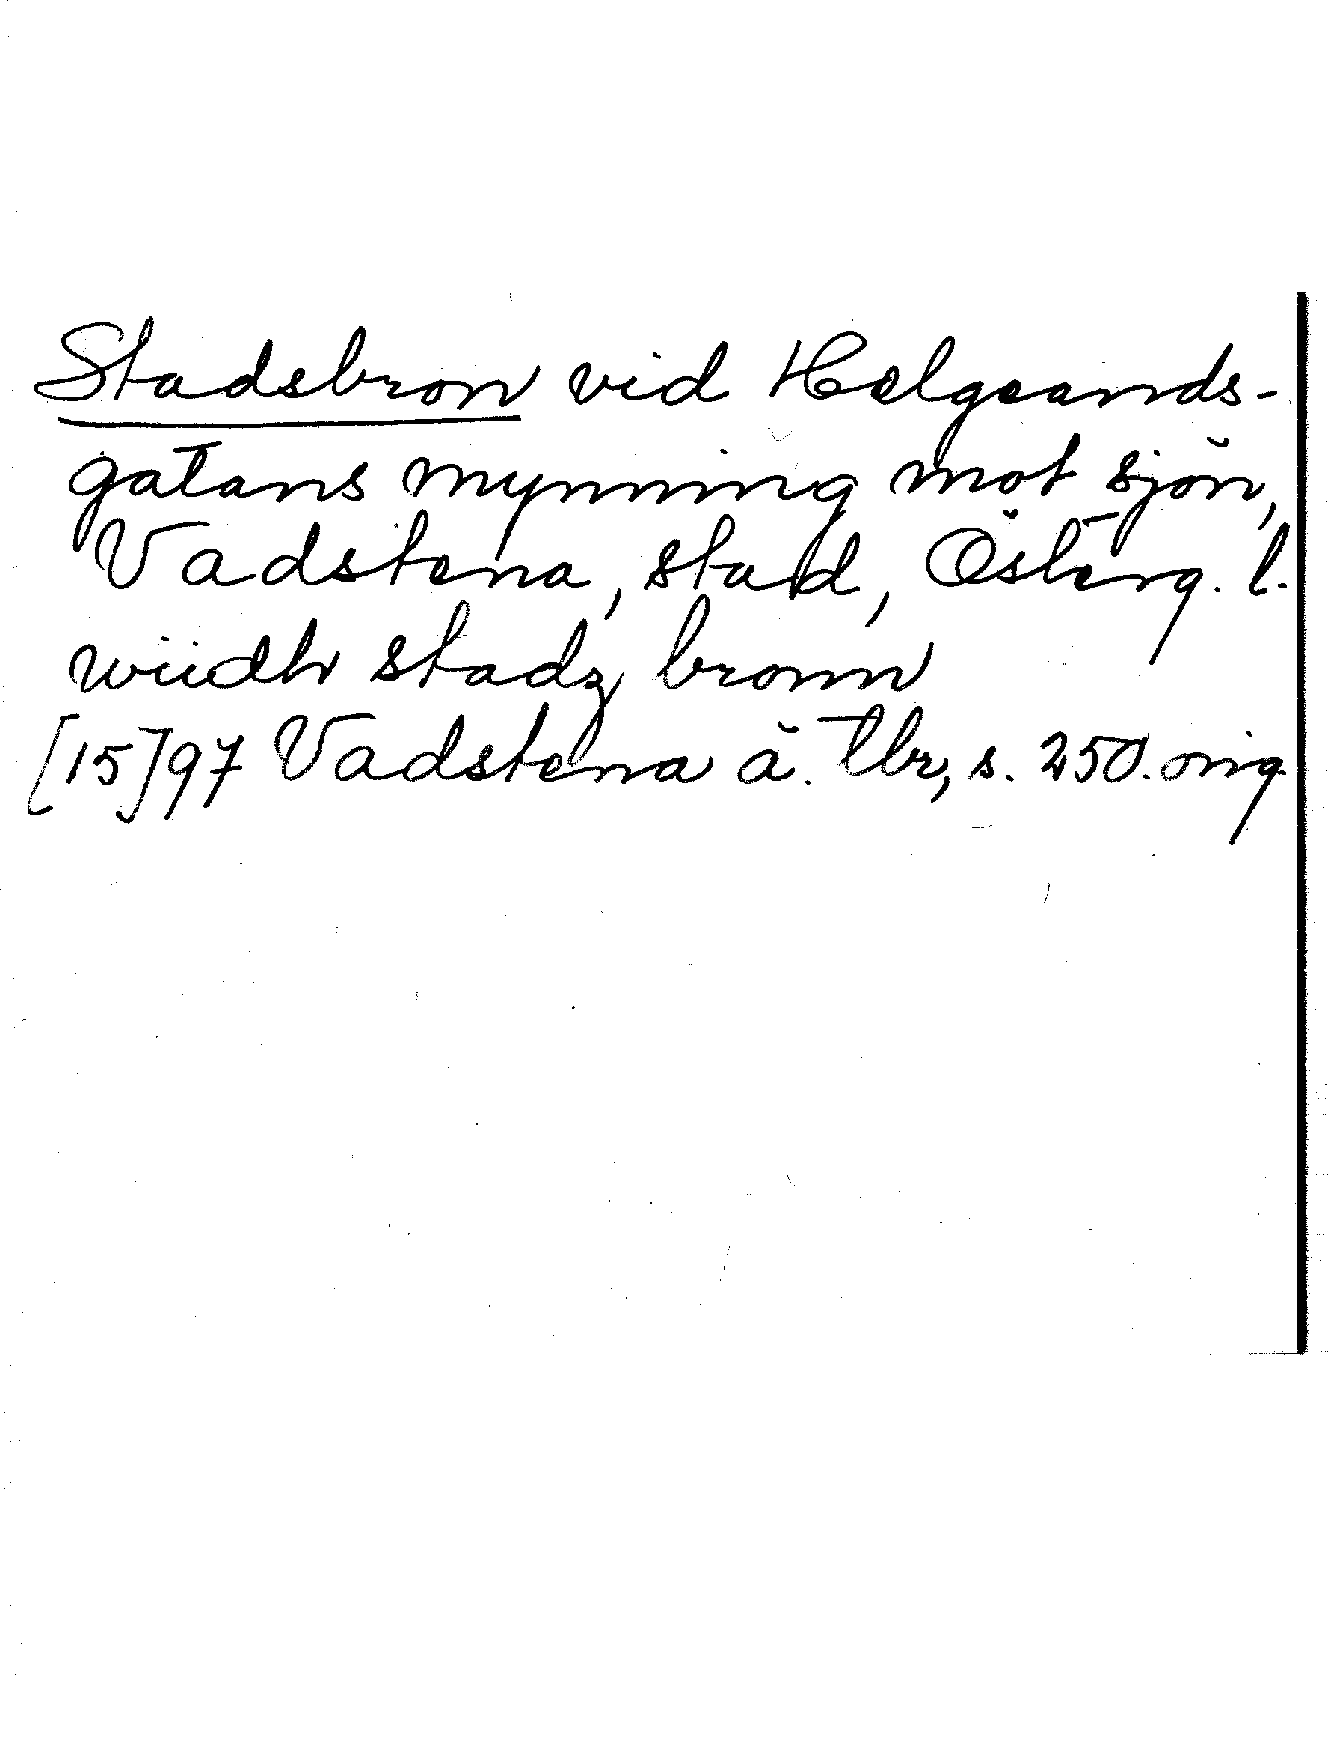 Stadsbron vid Helgeands-
gatans mynning mot sjön,
Vadstena, stad, Österg. l.
wiidh stadz bronn
[15]97 Vadstena ä. tbr, s. 250. orig.